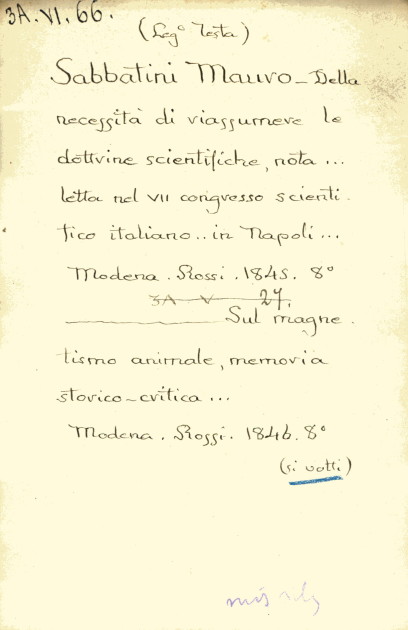 3A. VI. 66.
(Leg° Testa)
Sabbatini Mauro - Della
necessità di riassumere le
dottrine scientifiche, nota ...
letta nel VII congresso scienti.
fico italiano .. in Napoli ...
Modena. Rossi. 1845. 8°
3A V 27.
Sul magne.
tismo animale, memoria
storico-critica ...
Modena. Rossi. 1846. 8°
(si volti)